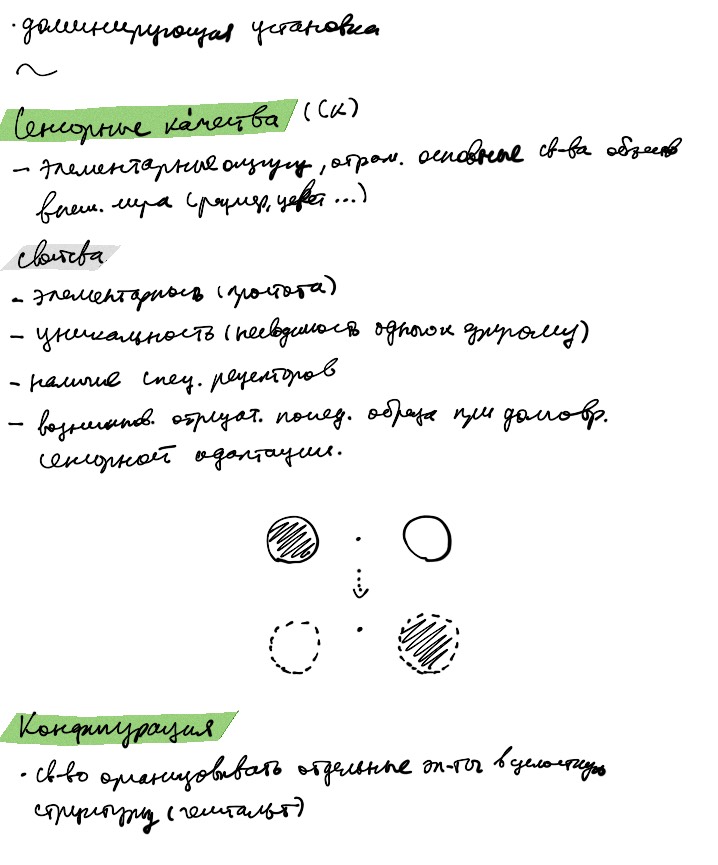 · доминирующая установка
Сенсорные качества (СК)
– элементарные ощущ, отраж. основные св-ва объектов
внеш. мира (размер, цвет ...)
свойства
– элементарность (простота)
– уникальность (несводимость одного к другому)
– наличие спец. рецепторов
– возникнов. отрицат. послед. образа при долговр.
сенсорной адаптации.
Конфигурация
· св-во организовывать отдельные эл-ты в целостную
структуру (гештальт)